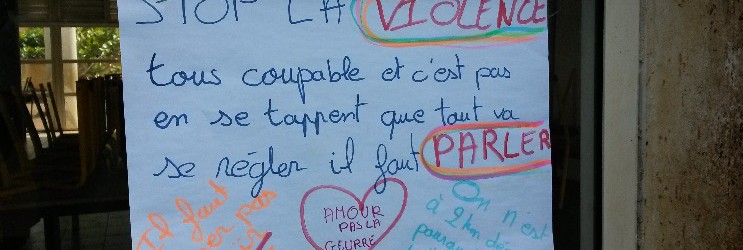 STOP LA VIOLENCE
tous coupable et c'est pas
en se tappent que tout va
se régler il faut PARLER
AMOUR
PAS LA
GEURRE
Il faut
pas
On n'est
à 2km de